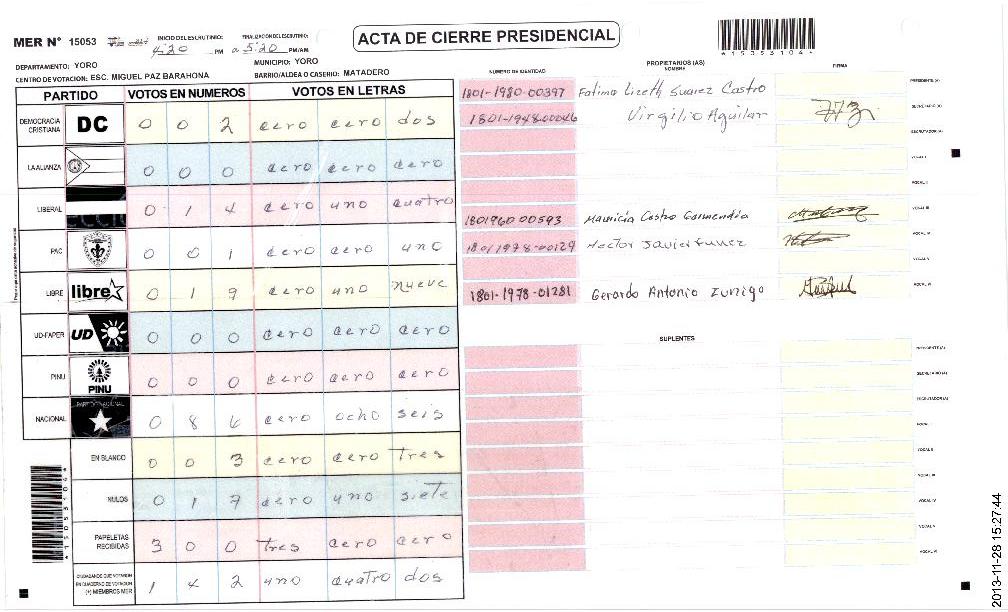 MER N° 15053
INICIO DEL ESCRUTINIO: 4:20 PM a FINALIZACION DEL ESCRUTINIO: 5:20 PM/AM
ACTA DE CIERRE PRESIDENCIAL
DEPARTAMENTO: YORO MUNICIPIO: YORO
CENTRO DE VOTACION: ESC. MIGUEL PAZ BARAHONA BARRIO/ALDEA O CASERIO: MATADERO
PARTIDO VOTOS EN NUMEROS VOTOS EN LETRAS
DEMOCRACIA CRISTIANA DC 0 0 2 cero cero dos
LA ALIANZA 0 0 0 cero cero cero
LIBERAL 0 1 4 cero uno cuatro
PAC 0 0 1 cero cero uno
LIBRE libre 0 1 9 cero uno nueve
UD-FAPER UD 0 0 0 cero cero cero
PINU PINU 0 0 0 cero cero cero
NACIONAL 0 8 6 cero ocho seis
EN BLANCO 0 0 3 cero cero tres
NULOS 0 1 7 cero uno siete
PAPELETAS RECIBIDAS 3 0 0 tres cero cero
CIUDADANOS QUE VOTARON EN CUADERNO DE VOTACION (+) MIEMBROS MER 1 4 2 uno cuatro dos
PROPIETARIOS (AS)
NUMERO DE IDENTIDAD NOMBRE FIRMA
1801-1980-00397 Fatima Lizeth Suarez Castro PRESIDENTE (A)
1801-1948-00046 Virgilio Aguilar SECRETARIO (A)
ESCRUTADOR (A)
VOCAL I
VOCAL II
1801960 00593 Mauricia Castro Garmendia VOCAL III
1801 1978-00129 Hector Javier Funez VOCAL IV
VOCAL V
1801-1978-01281 Gerardo Antonio Zuniga VOCAL VI
SUPLENTES
PRESIDENTE (A)
SECRETARIO (A)
ESCRUTADOR (A)
VOCAL I
VOCAL II
VOCAL III
VOCAL IV
VOCAL V
VOCAL VI
2013-11-28 15:27:44